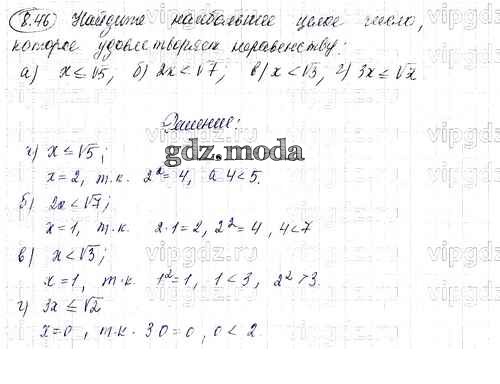 8.46) Найдите наибольшее целое число,
которое удовлетворяет неравенству:
а) x ≤ √5; б) 2x < √7; в) x < √3; г) 3x ≤ √2
Решение:
а) x ≤ √5;
gdz.moda
x = 2, т.к. 2² = 4, а 4 < 5.
б) 2x < √7;
x = 1, т.к. 2·1 = 2, 2² = 4, 4 < 7
в) x < √3;
x = 1, т.к. 1² = 1, 1 < 3, 2² > 3.
г) 3x ≤ √2
x = 0, т.к. 3·0 = 0, 0 < 2.
vipgdz.ru